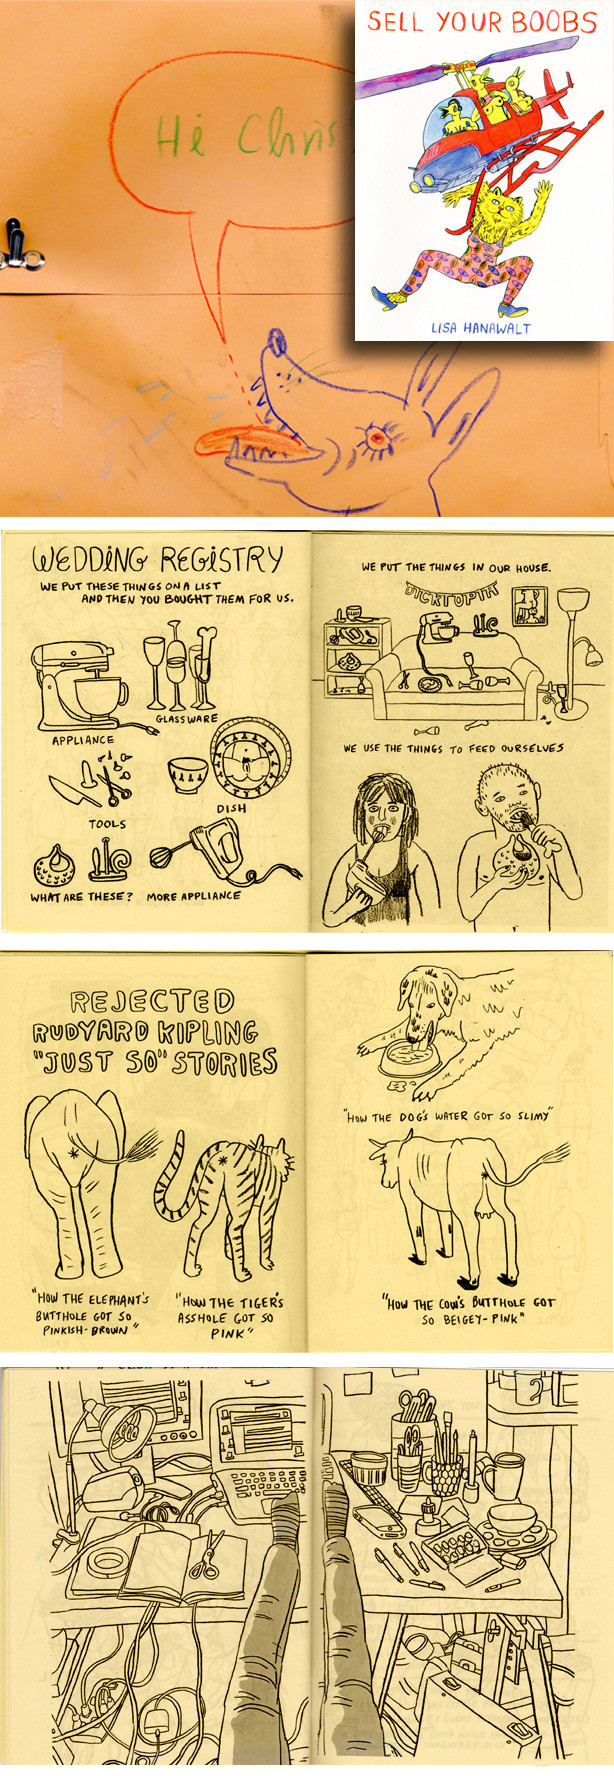 SELL YOUR BOOBS
Hi Chris
LISA HANAWALT
WEDDING REGISTRY
WE PUT THESE THINGS ON A LIST
AND THEN YOU BOUGHT THEM FOR US.
APPLIANCE
GLASSWARE
TOOLS
DISH
WHAT ARE THESE?
MORE APPLIANCE
WE PUT THE THINGS IN OUR HOUSE.
DICKTOPIA
WE USE THE THINGS TO FEED OURSELVES
REJECTED
RUDYARD KIPLING
"JUST SO" STORIES
"HOW THE ELEPHANT'S
BUTTHOLE GOT SO
PINKISH-BROWN"
"HOW THE TIGER'S
ASSHOLE GOT SO
PINK"
"HOW THE DOG'S WATER GOT SO SLIMY"
"HOW THE COW'S BUTTHOLE GOT
SO BEIGEY-PINK"